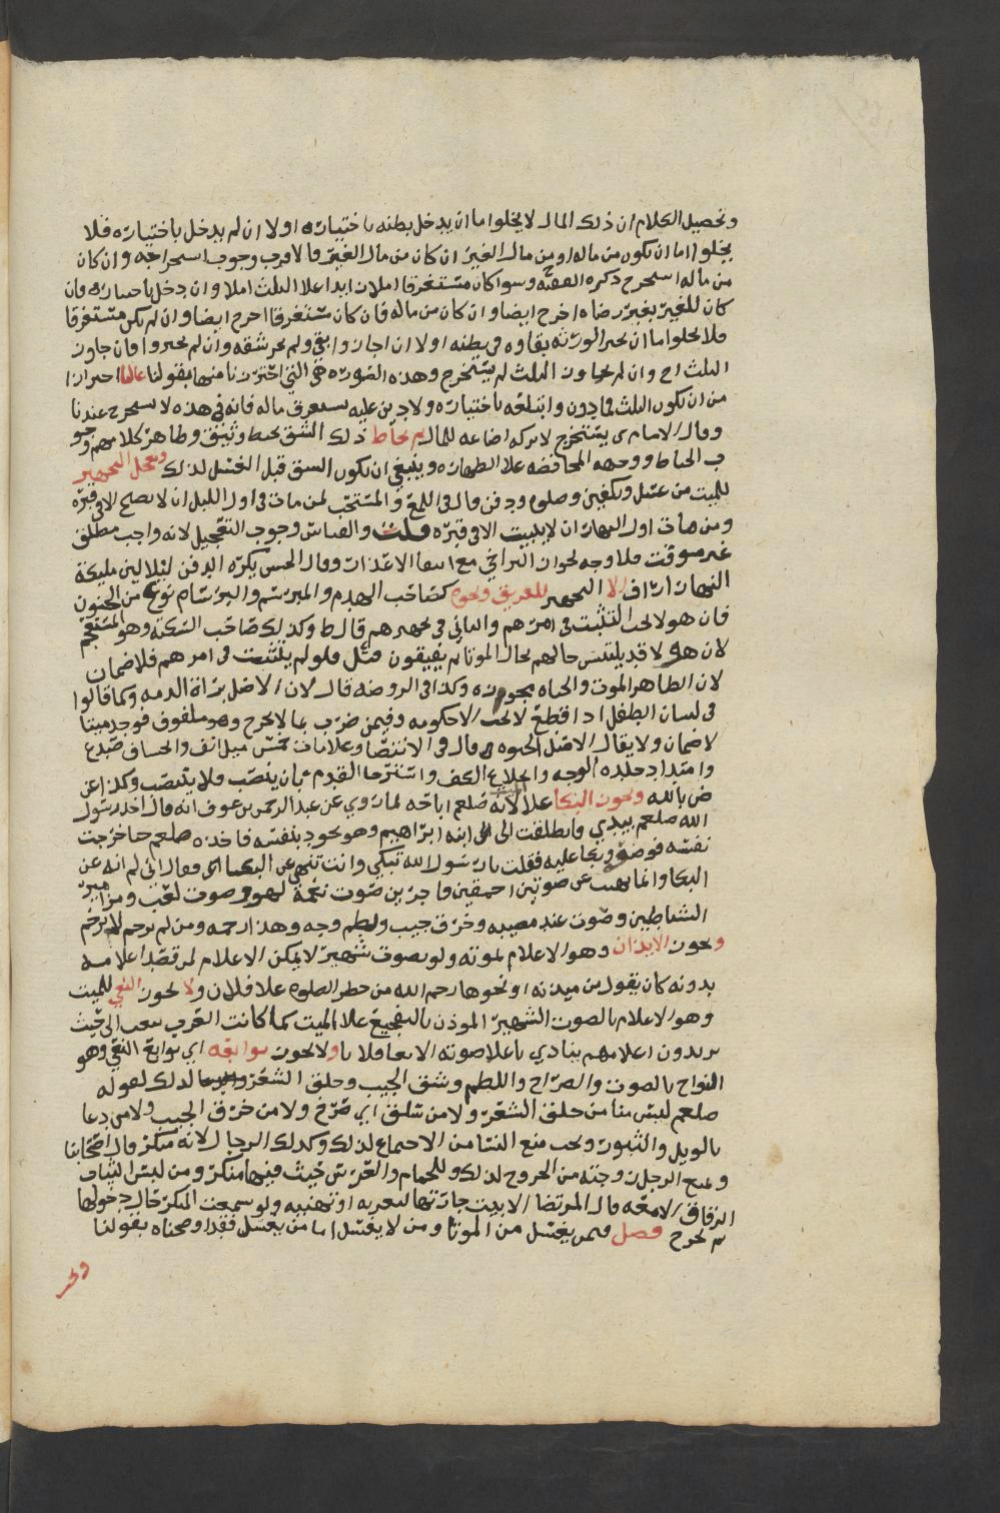 وتحصيل الكلام ان ذلك المال لا يخلوا اما ان يدخل بطنه باختياره اولا ان لم يدخل باختياره فلا
يخلوا اما ان يكون من ماله او من مال الغير ان كان من مال الغير فالاقرب وجوب استخراجه وان كان
من ماله استخرج ذكره الفقيه وسوا كان مستغرقا ام لا زايدا علا الثلث ام لا وان دخل باختياره فان
كان للغير بغير رضاه اخرج ايضا وان كان من ماله فان كان مستغرقا اخرج ايضا وان لم يكن مستغرقا
فلا يخلوا اما ان يجيز الورثه بقاوه في بطنه اولا ان اجازوا بقي ولم يجز شقه وان لم يجيزوا فان جاوز
الثلث اخرج وان لم يجاوز الثلث لم يستخرج وهذه الصوره هي التي احترزنا منها بقولنا غالبا احترازا
من ان يكون الثلث فما دون وابتلعه باختياره ولا دين عليه يستغرق ماله فانه في هذه لا يستخرج عندنا
وقال الامام ى يستخرج لان تركه اضاعه للمال ثم يخاط ذلك الشق بخيط وثيق وظاهر كلامهم وجو
ب الخياط ووجهه المحافضه علا الطهاره وينبغي ان يكون الشق قبل الغسل لذلك ويعجل التجهيز
للميت من غسل وتكفين وصلوه ودفن قال في اللمع والمستحب لمن مات في اول الليل ان لا يصبح الا في قبره
ومن مات اول النهار ان لا يبيت الا في قبره قلت والقياس وجوب التعجيل لانه واجب مطلق
غير موقت فلا وجه لجواز التراخي مع انتفا الاعذار وقال الحسن يكره الدفن ليلا لين مليكة
النهار اراف الا التجهيز للغريق ونحوه كصاحب الهدم والمبرسم والبرسام نوع من الجنون
فان هولا يجب التثبت في امرهم والتاني في تجهيزهم قال ط وكذلك صاحب السكته وهو المتفجع
لان هولا قد يلتبس حالهم بحال الموتا ثم يفيقون قيل فلو لم يتثبت في امرهم فلا ضمان
لان الظاهر الموت والحياه مجوزه وكذا في الروضه قال لان الاصل براة الذمه وكما قالوا
في لسان الطفل اذا قطع لا يجب الا حكومه وفيمن ضرب بما لا يجرح وهو ملفوف فوجد ميتا
لا ضمان ولا يقال الاصل الحيوه قال في الانتصار وعلامات خمس ميل انف وانخساف صدغ
وامتداد جلده الوجه وانخلاع الكف واسترخا القدم بان ينصب فلا ينتصب وكذا عن
ض بالله ويجوز البكا علا لانه صلعم اباحه لما روي عن عبد الرحمن بن عوف انه قال اخذ رسول
الله صلعم بيدي فانطلقت الى ابنه ابراهيم وهو يجود بنفسه فاخذه صلعم حتا خرجت
نفسه فوضعه وبكا عليه فقلت يا رسول الله تبكي وانت تنهى عن البكا فقال اني لم انه عن
البكا وانما نهيت عن صوتين احمقين فاجرين صوت نغمة لهو وصوت لعب ومزامير
الشياطين وصوت عند مصيبه وخرق جيب ولطم وجه وهذا رحمه ومن لم يرحم لا يرحم
ويجوز الايذان وهو الاعلام بموته ولو بصوت شهير لا يمكن الاعلام لمن قصد اعلامه
بدونه كان يقول من ميذنه او نحوها رحم الله من حظر الصلوه علا فلان ولا يجوز النعي للميت
وهو الاعلام بالصوت الشهير الموذن بالتفجيع علا الميت كما كانت العرب تبعث الى حيث
يريدون اعلامهم ينادي باعلا صوته الا نعا فلا نا ولا يجوز توابعه اي توابع النعي وهو
النواح بالصوت والصراخ واللطم وشق الجيب وحلق الشعر ونحوها لذلك لقوله
صلعم ليس منا من حلق الشعر ولا من سلق اي صرخ ولا من خرق الجيب ولا من دعا
بالويل والثبور ويجب منع النسا من الاجتماع لذلك وكذلك الرجال لانه منكر قال اصحابنا
ويمنع الرجل زوجته من الخروج لذلك وللحمام والعرس حيث فيها منكر ومن لبس الثياب
الرقاق الا معه قال المرتضا الا بيت جارتها لتعزيه او تهنيه ولو سمعت المنكر حال دخولها
ثم تخرج فصل فيمن يغسل من الموتا ومن لا يغسل اما من يغسل فقد اوضحناه بقولنا